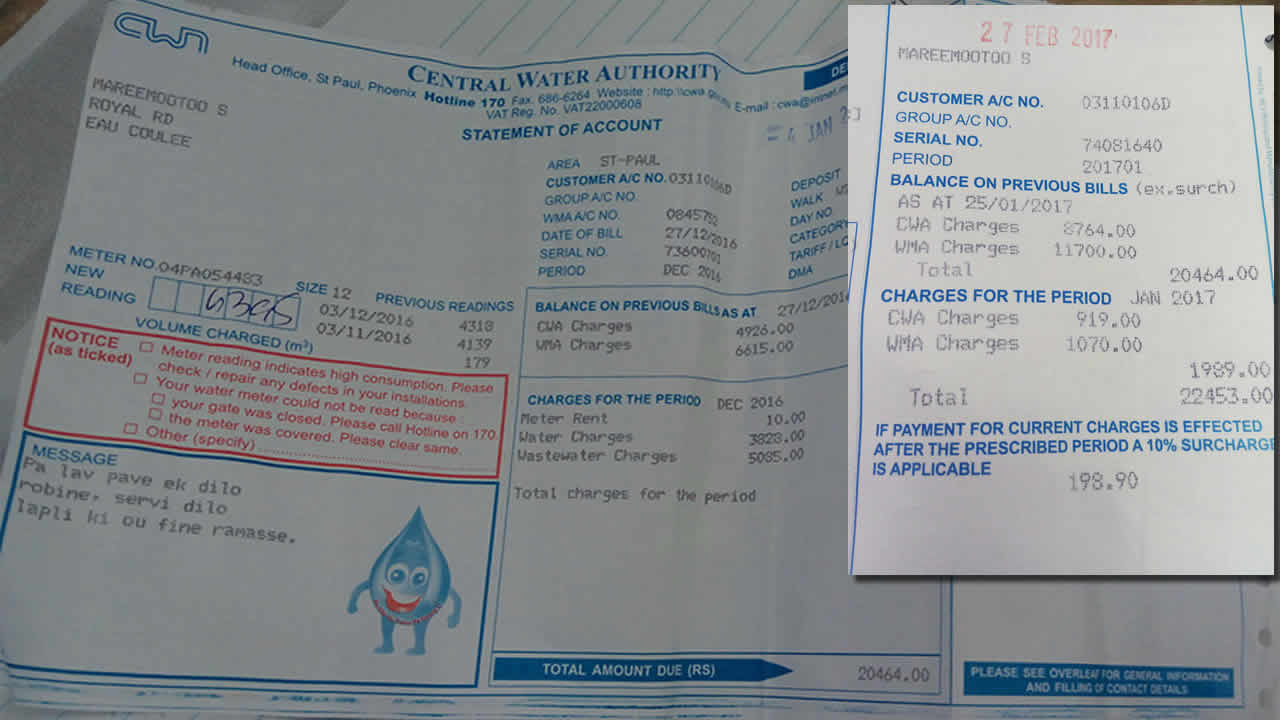 cwa
CENTRAL WATER AUTHORITY
Head Office, St Paul, Phoenix Hotline 170 Fax. 686-6264 Website : http://cwa. E-mail : cwa@intnet.
VAT Reg. No. VAT22000608
STATEMENT OF ACCOUNT
MAREEMOOTOO S
ROYAL RD
EAU COULEE
4 JAN
AREA ST-PAUL
CUSTOMER A/C NO. 03110106D
GROUP A/C NO.
WMA A/C NO. 0845752
DATE OF BILL 27/12/2016
SERIAL NO 73600701
PERIOD DEC 2016
DEPOSIT
WALK
DAY NO
CATEGORY
TARIFF / LC
DMA
METER NO. 04PA054483 SIZE 12 PREVIOUS READINGS
NEW READING
03/12/2016 4318
03/11/2016 4139
VOLUME CHARGED (m³) 179
NOTICE (as ticked)
Meter reading indicates high consumption. Please
check / repair any defects in your installations.
Your water meter could not be read because :
your gate was closed. Please call Hotline on 170.
the meter was covered. Please clear same.
Other (specify)
MESSAGE
Pa lav pave ek dilo
robine, servi dilo
lapli ki ou fine ramasse.
BALANCE ON PREVIOUS BILLS AS AT 27/12/201
CWA Charges 4926.00
WMA Charges 6615.00
CHARGES FOR THE PERIOD DEC 2016
Meter Rent 10.00
Water Charges 3828.00
Wastewater Charges 5085.00
Total charges for the period
TOTAL AMOUNT DUE (RS) 20464.00
PLEASE SEE OVERLEAF FOR GENERAL INFORMATION
AND FILLING OF CONTACT DETAILS
27 FEB 2017
MAREEMOOTOO S
CUSTOMER A/C NO. 03110106D
GROUP A/C NO.
SERIAL NO. 74081640
PERIOD 201701
BALANCE ON PREVIOUS BILLS (ex.surch)
AS AT 25/01/2017
CWA Charges 8764.00
WMA Charges 11700.00
Total 20464.00
CHARGES FOR THE PERIOD JAN 2017
CWA Charges 919.00
WMA Charges 1070.00
1989.00
Total 22453.00
IF PAYMENT FOR CURRENT CHARGES IS EFFECTED
AFTER THE PRESCRIBED PERIOD A 10% SURCHARGE
IS APPLICABLE
198.90